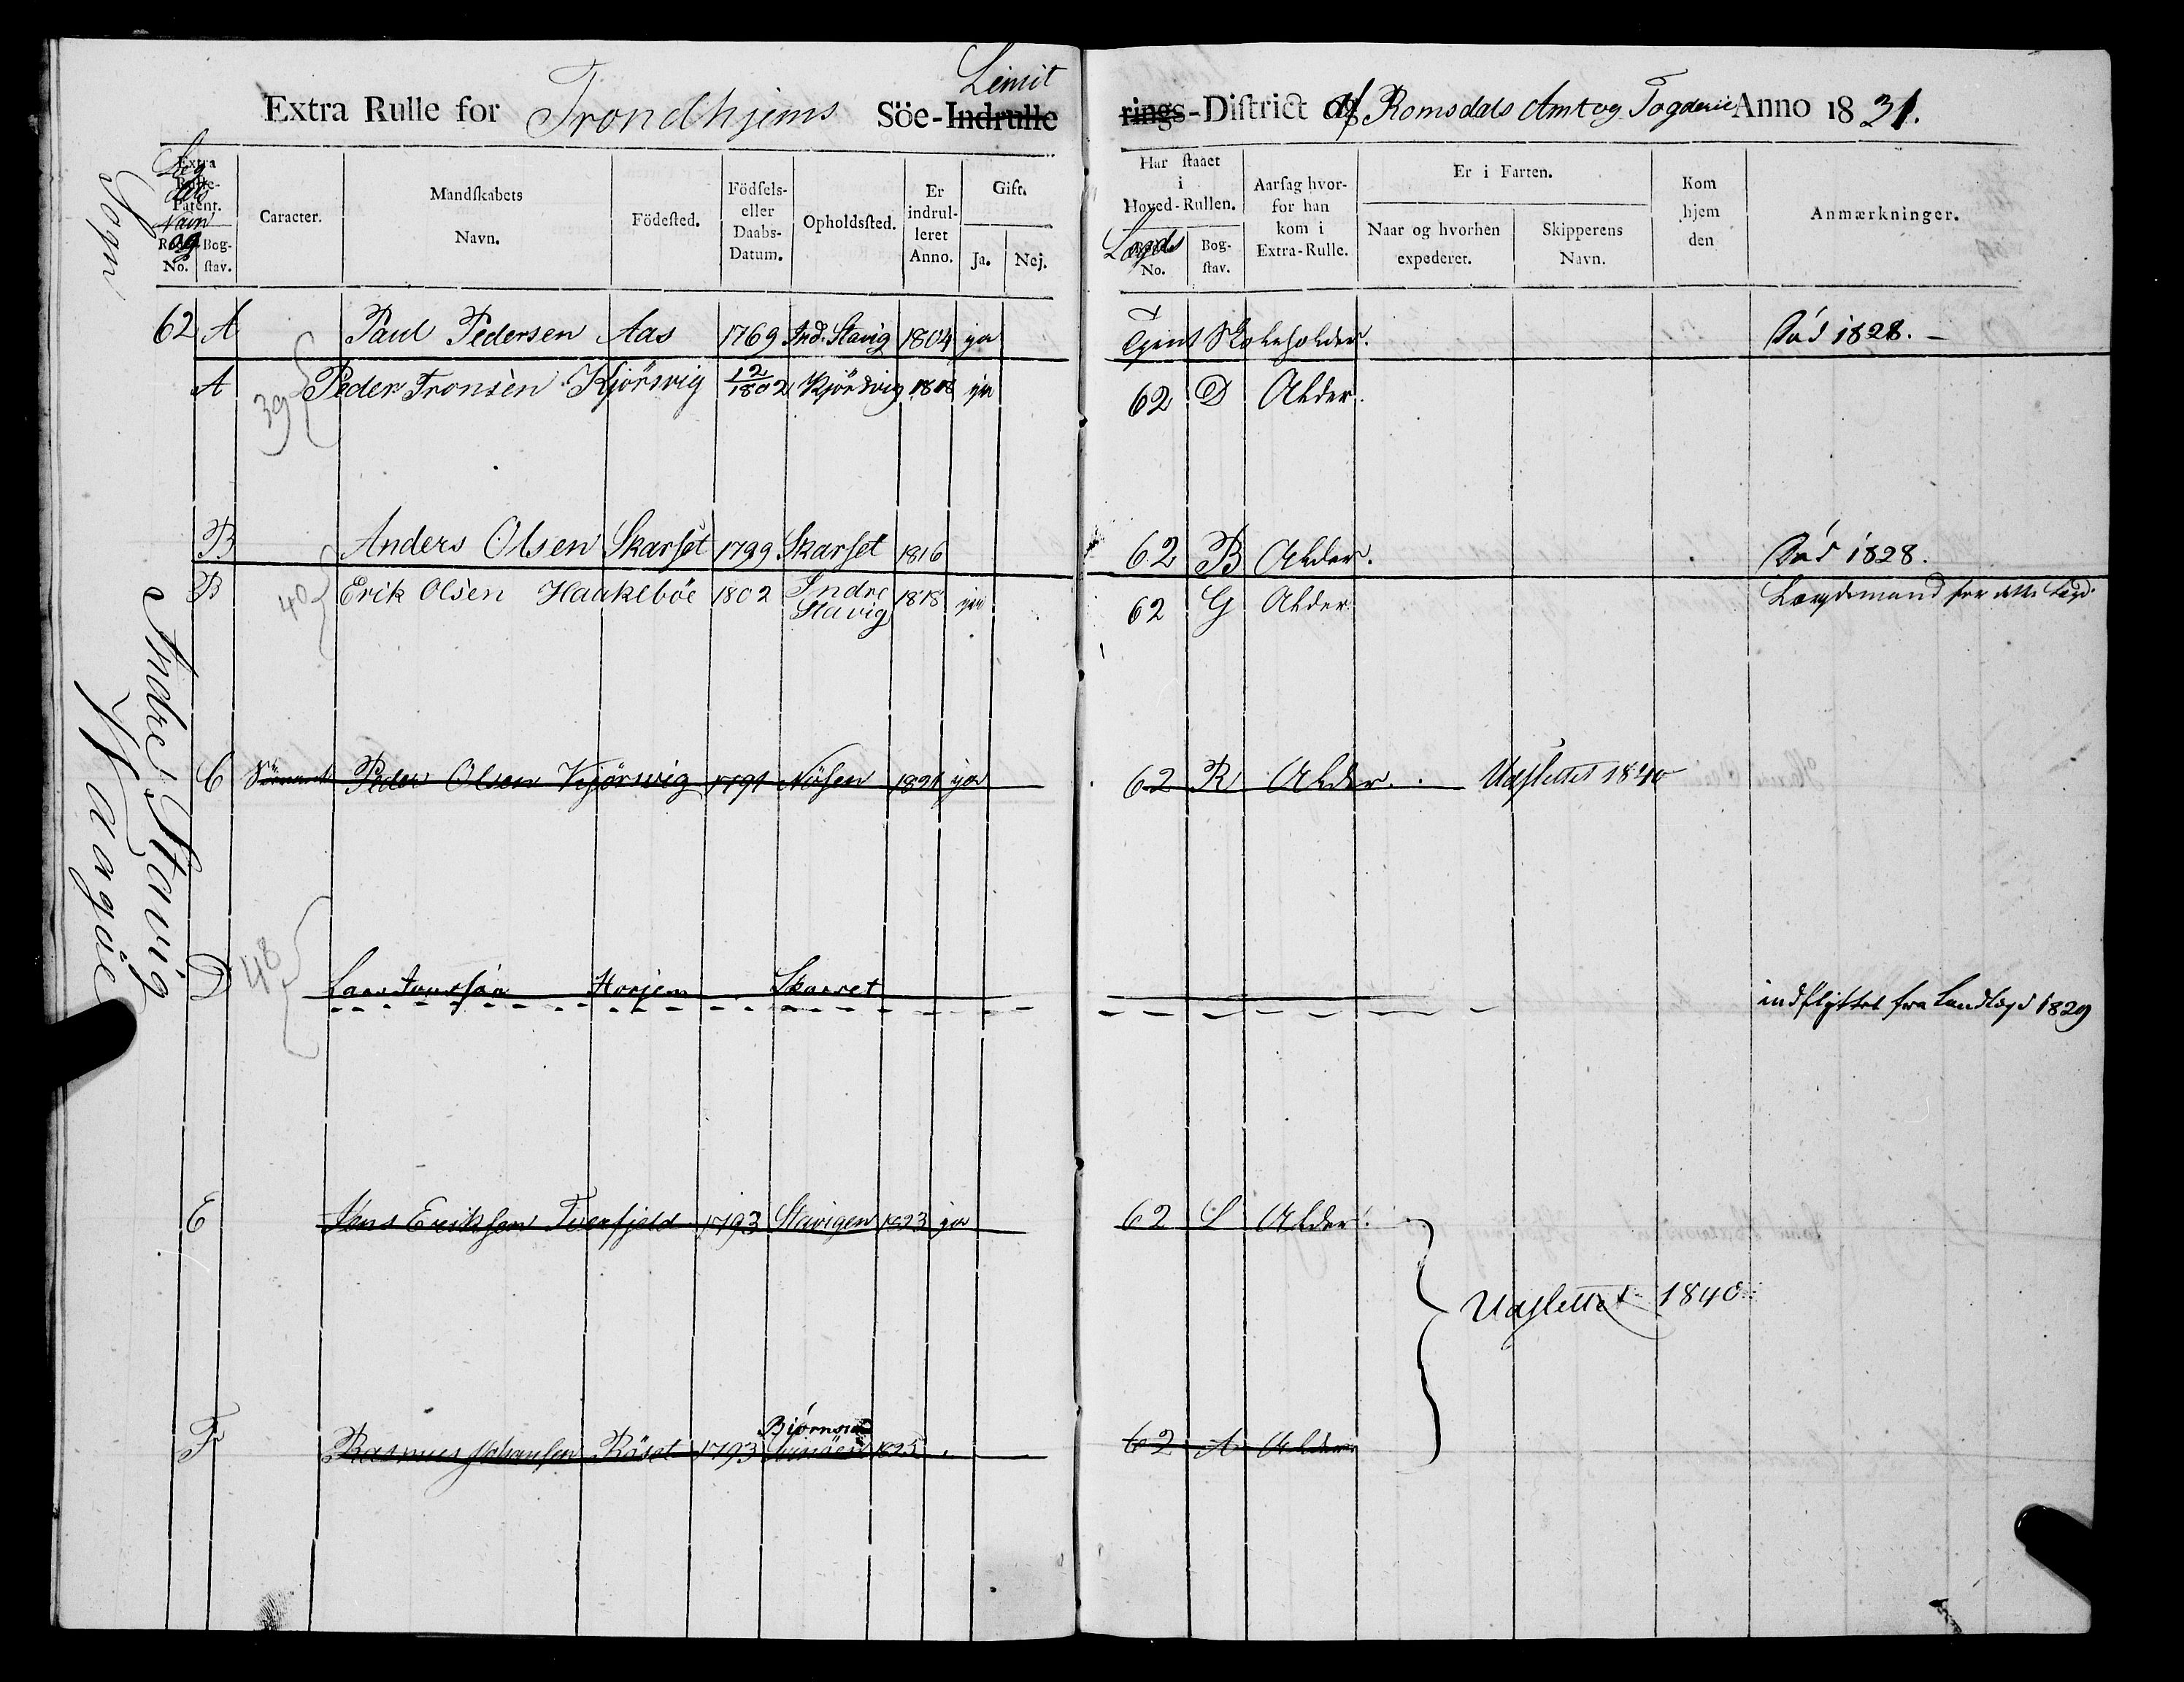 Limit
Extra Rulle for Trondhjems Söe-Indrulle rings-District af Romsdals Amt og Fogderie Anno 1831.
Extra Rulle-Patent. Rulle No. Bog-stav. Caracter. Mandskabets Navn. Födested. Födsels- eller Daabs-Datum. Opholdssted. Er indrul-leret Anno. Gift. Ja. Nej. Har staaet i Hoved-Rullen. No. Bog-stav. Aarsag hvor-for han kom i Extra-Rulle. Er i Farten. Naar og hvorhen expederet. Skipperens Navn. Kom hjem den Anmærkninger.
Navn og
Lægds
Sogn
62 A Paul Pedersen Aas 1769 Ind. Stavig 1804 ja Tjent Skoleholder. Död 1828. -
A 39 Peder Tronsen Kjörsvig 12/1802 Kjörsvig 1818 ja 62 D Alder.
B Anders Olsen Skarset 1799 Skarset 1816 62 B Alder. Död 1828.
B 40 Erik Olsen Haukeböe 1802 Indre Stavig 1818 ja 62 G Alder Lægdsmand for dette Lægd.
C Peder Olsen Kjörsvig 1791 Nösen 1821 ja 62 R Alder. Udslettet 1840
Indre Stavig
Vaagöe
D 48 Lars Jonssön Horjem Skarset indflyttet fra Landlægd 1829
E Jens Eriksen Tverfjeld 1793 Stavigen 1823 ja 62 L Alder.
Udslettet 1840
F Rasmus Johansen Röset 1793 Björnsund 1825 62 A Alder